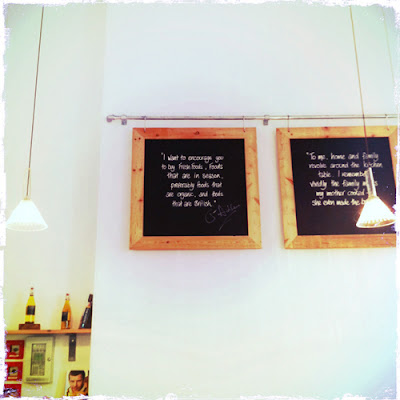 "I want to encourage you
to buy fresh foods, foods
that are in season,
preferably foods that
are organic, and foods
that are British."
"To me, home and family
revolve around the kitchen
table. I remember
vividly the family
my mother cooked
she even made the